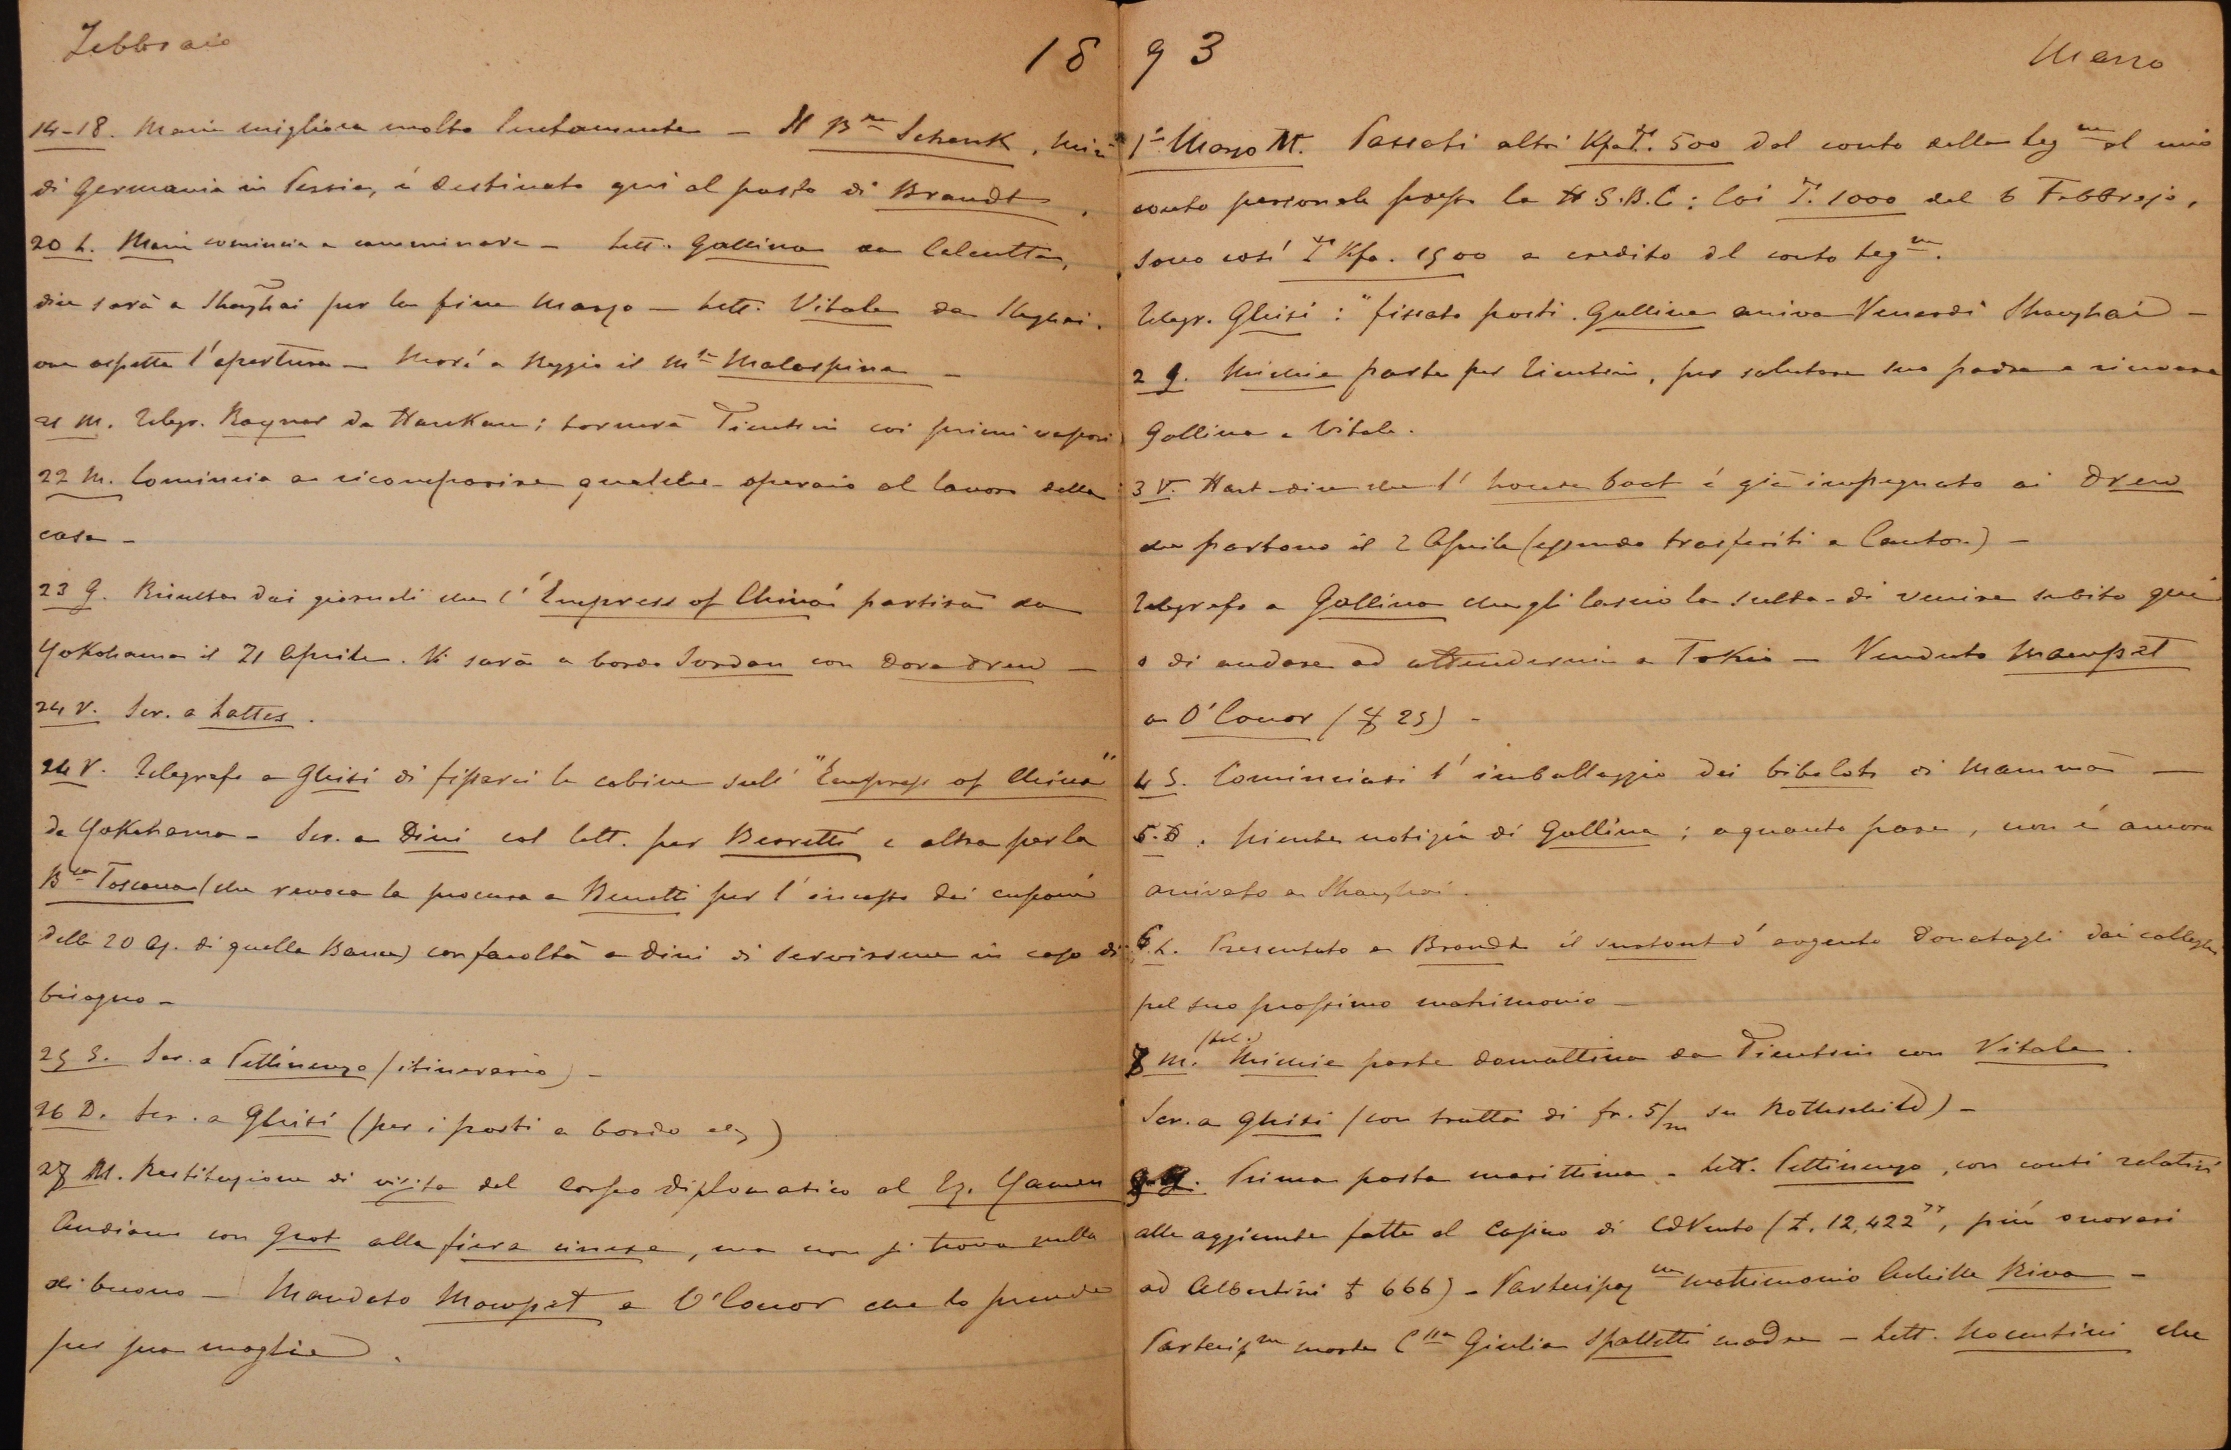 Febbraio 18
14-18. Marie migliora molto lentamente — Il Bne Schenk, Minº
di Germania in Persia, é destinato qui al posto di Brandt.
20 L. Marie comincia a camminare — Lett. Gallina da Calcutta,
dice sarà a Shanghai per la fine Marzo — Lett. Vitale da Shghai.
ove aspetta l'apertura — Morí a Reggio il Mse Malaspina —
21 M. Telegr. Raynar da Hankau; tornerà Tientsin coi primi vapori
22 M. Comincia a ricomparire qualche operaio al lavoro della
casa —
23 G. Risulta dai giornali che l'"Empress of China" partirà da
Yokohama il 21 Aprile. Vi sarà a bordo Jordan con Dora Drew —
24 V. Scr. a Lattes.
24 V. Telegrafo a Ghisi di fissarci le cabine sull' "Empress of China"
da Yokohama — Scr. a Dini col lett. per Bearetti e altra per la
Bca Toscana (che revoca la procura a Benetti per l'incasso dei cuponi
delle 20 Az. di quella Banca) con facoltà a Dini di servirsene in caso di
bisogno —
25 S. Scr. a Pettinengo (itinerario) —
26 D. Scr. a Ghisi (per i posti a bordo etc)
27 M. Restituzione di visita del Corpo diplomatico al Tz. Yamen
Andiamo con Grot alla fiera cinese, ma non si trova nulla
di buono — Mandato Mowpat a O'Conor che lo prende
per sua moglie.
93 Marzo
1º Marzo M. Passati altri Kfa T. 500 dal conto della Legne al mio
conto personale presso la H.S.B.C: Coi T. 1000 del 6 Febbrajo,
sono cosí T Kfa. 1500 a credito del conto Legne.
Telegr. Ghisi: "fissato posti. Gallina arriva Venerdí Shanghai —
2 G. Michie parte per Tientsin, per salutare suo padre e ricevere
Gallina e Vitale.
3 V. Hart dice che l'house boat é già impegnato ai Drew
che partono il 2 Aprile (essendo trasferiti a Canton) —
Telegrafo a Gallina che gli lascio la scelta di venire subito qui
o di andare ad attendermi a Tokio — Venduto Mowpat
a O'Conor ($ 25) —
4 S. Cominciasi l'imballaggio dei bibelots di Mammà —
5. D. Niente notizie di Gallina; a quanto pare, non é ancora
arrivato a Shanghai.
6. L. Presentato a Brandt il surtout d'argento donatogli dai colleghi
pel suo prossimo matrimonio —
7 M. (tel.) Michie parte domattina da Tientsin con Vitale.
Scr. a Ghisi (con tratta di fr. 5/m su Rothschild) —
9 G. Prima posta marittima — Lett. Pettinengo, con conti relativi
alle aggiunte fatte al Casino di CdVento (£. 12,422 77, piú onorari
ad Albertini £ 666) — Partecipazne matrimonio Achille Riva —
Partecipne morte Cssa Giulia Spalletti madre — Lett. Nocentini che